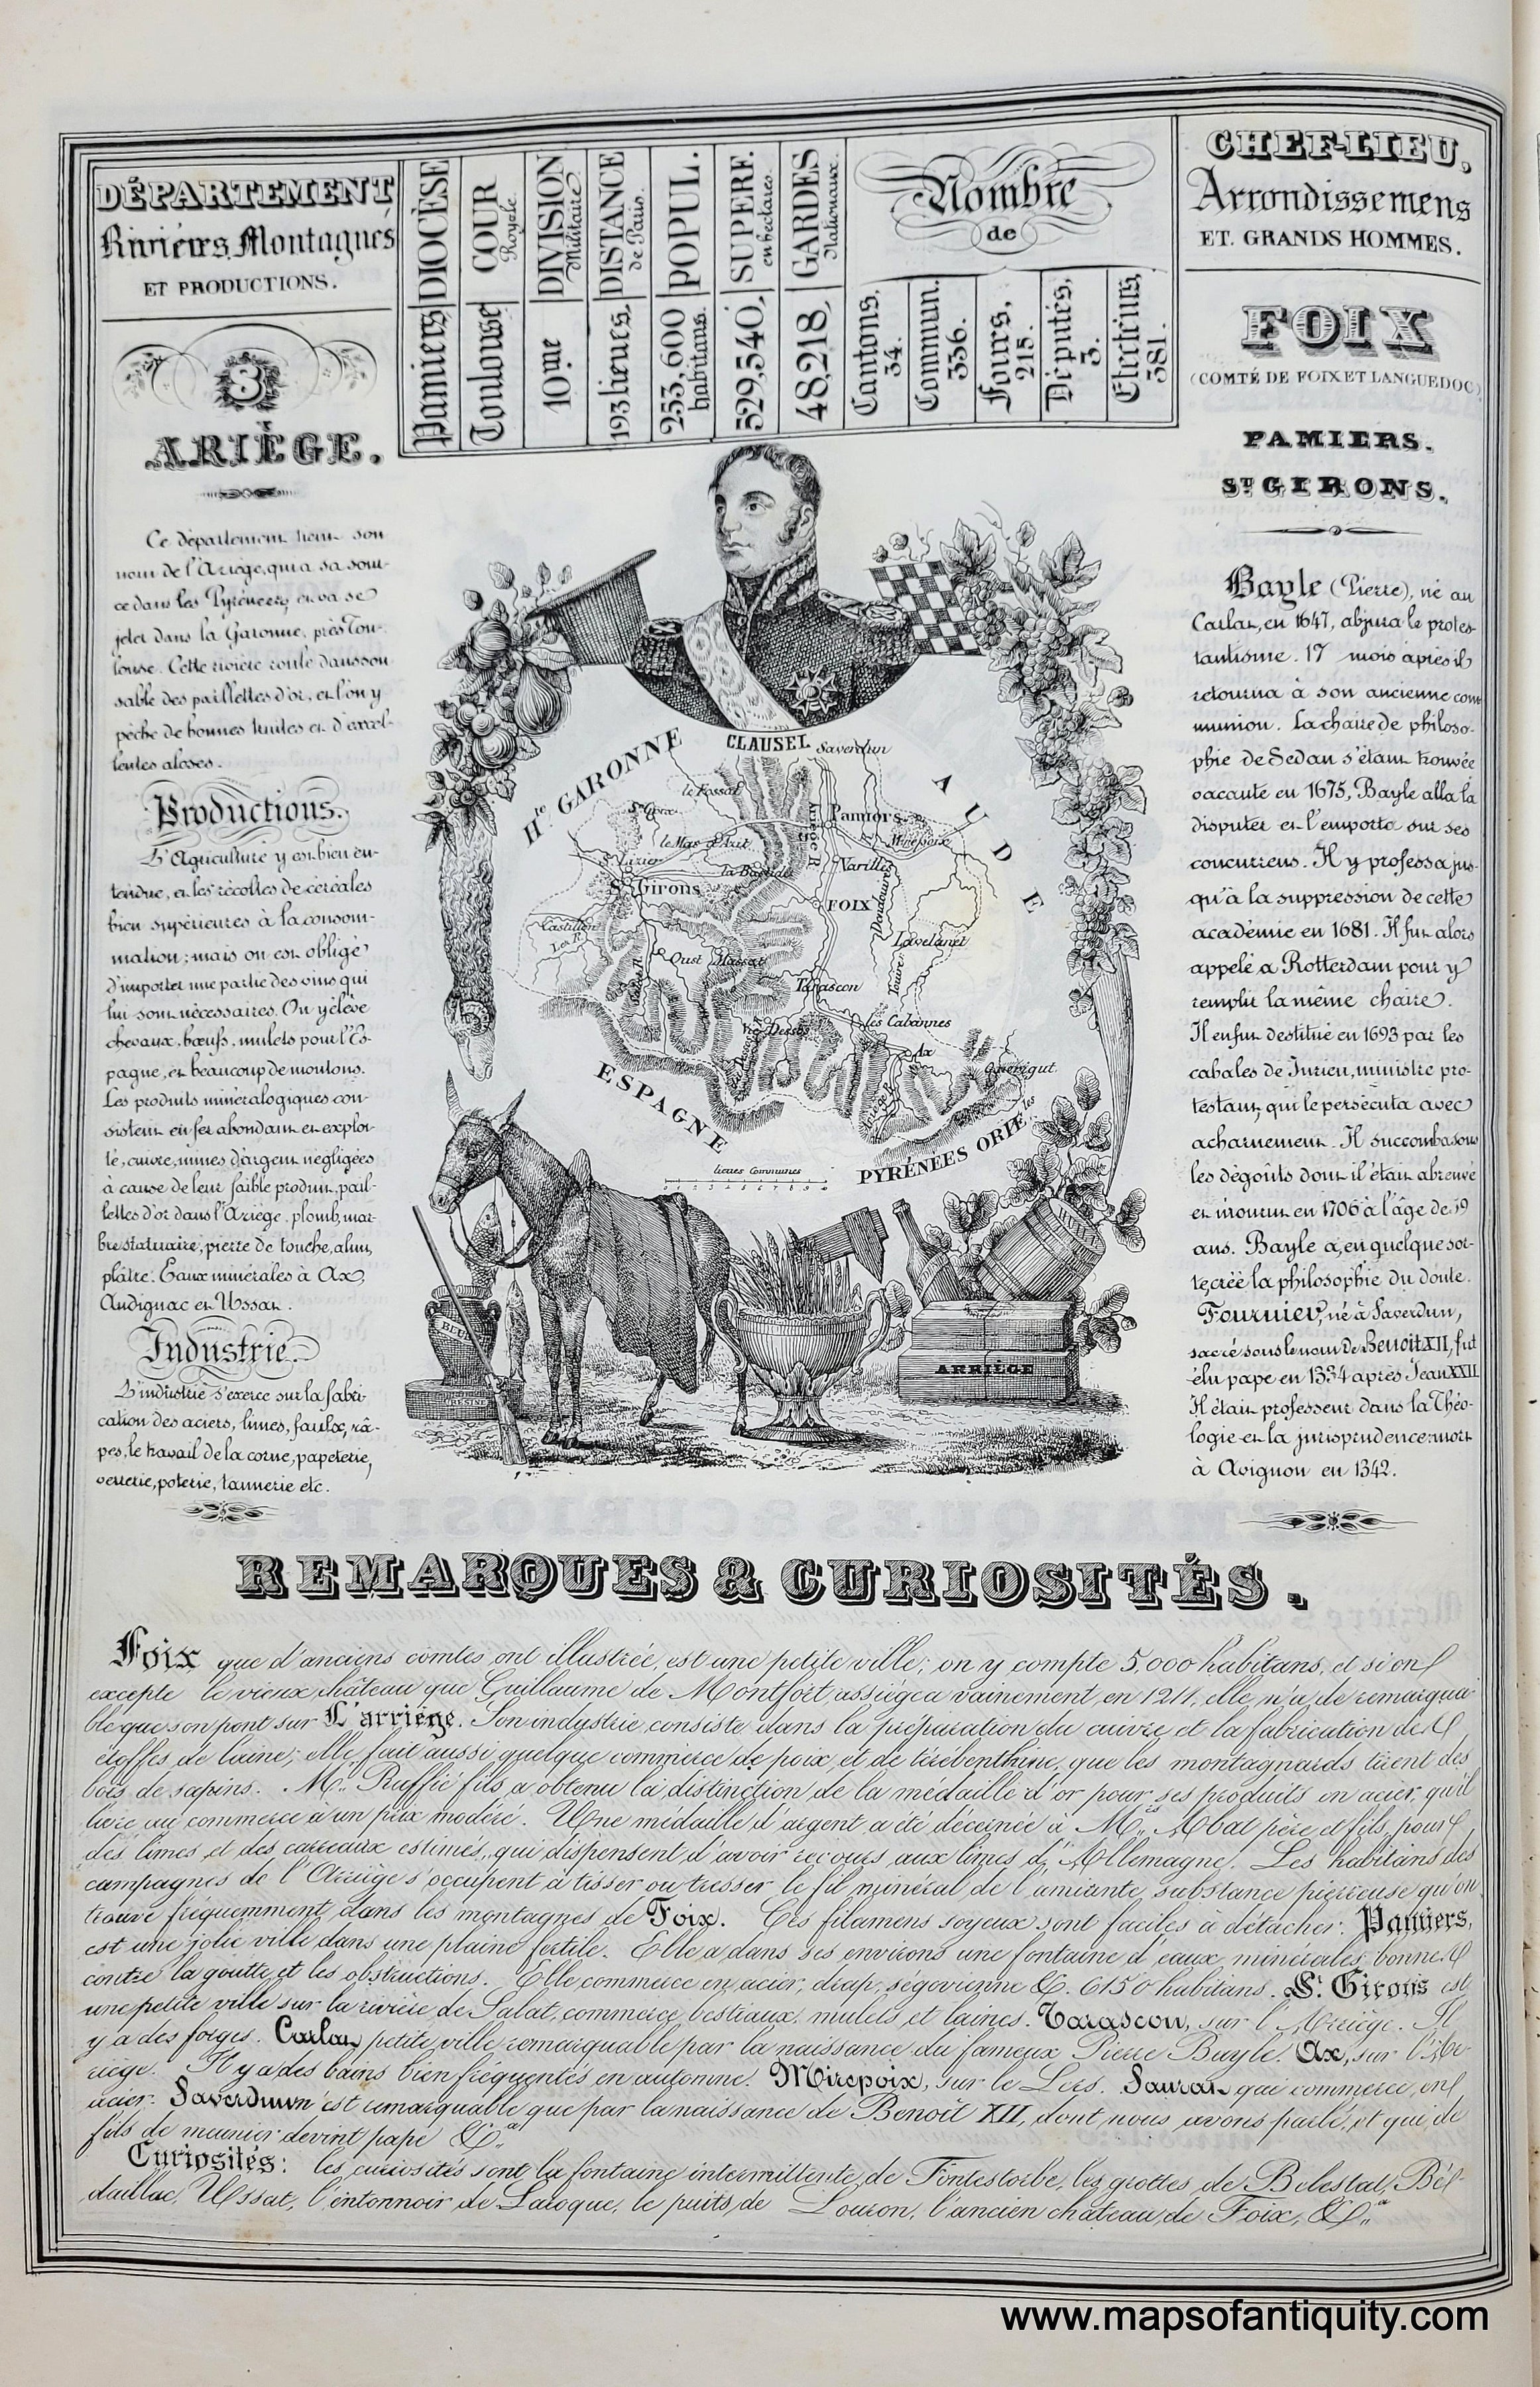 DÉPARTEMENT
Rivières, Montagnes
ET PRODUCTIONS.
DIOCÈSE
Pamiers
COUR
Royale.
Toulouse
DIVISION
Militaire
10me
DISTANCE
de Paris.
193 lieues.
POPUL.
253,600
habitans.
SUPERF.
en hectares.
529,540,
GARDES
Nationaux.
48,218,
Nombre
de
Cantons,
34.
Commun.
336.
Fours,
215.
Députés,
3.
Electeurs,
381.
CHEF-LIEU,
Arrondissemens
ET. GRANDS HOMMES.
8
ARIÈGE.
Ce département tient son
nom de l'Ariège, qui a sa sour-
ce dans les Pyrénées, et va se
jeter dans la Garonne, près Tou-
louse. Cette rivière roule dans son
sable des paillettes d'or, et l'on y
pêche de bonnes truites et d'excel-
lentes aloses.
Productions.
L'Agriculture y est bien en-
tendue, et les récoltes de céréales
bien supérieures à la consom-
mation; mais on est obligé
d'importer une partie des vins qui
lui sont nécessaires. On y élève
chevaux, bœufs, mulets pour l'Es-
pagne, et beaucoup de moutons.
Les produits minéralogiques con-
sistent en fer abondant et exploi-
té, cuivre, mines d'argent négligées
à cause de leur faible produit, pail-
lettes d'or dans l'Ariège, plomb, mar-
bre statuaire, pierre de touche, alun,
plâtre. Eaux minérales à Ax,
Audignac et Ussat.
Industrie.
L'industrie s'exerce sur la fabri-
cation des aciers, limes, faulx, râ-
pes, le travail de la corne, papeterie,
verrerie, poterie, tannerie etc.
CLAUSEL
Hte. GARONNE
AUDE
ESPAGNE
PYRÉNÉES ORIENles
Saverdun
le Fossat
Ste Croix
Pamiers
le Mas d'Azil
Mirepoix
St Lizier
la Bastide
Varilles
St Girons
FOIX
Castillon
Lavelanet
Oust
Massat
Tarascon
Vic Dessos
les Cabannes
Ax
Quérigut
Lieues Communes
BLEU
RÉSINE
HUILE
ARRIÈGE
FOIX
(COMTÉ DE FOIX ET LANGUEDOC)
PAMIERS.
ST GIRONS.
Bayle (Pierre), né au
Carlat, en 1647, abjura le protes-
tantisme. 17 mois après il
retourna à son ancienne com
munion. La chaire de philoso-
phie de Sedan s'étant trouvée
vacante en 1675, Bayle alla la
disputer et l'emporta sur ses
concurrens. Il y professa jus-
qu'à la suppression de cette
académie en 1681. Il fut alors
appelé a Rotterdam pour y
remplir la même chaire.
Il en fut destitué en 1693 par les
cabales de Jurieu, ministre pro-
testant, qui le persécuta avec
acharnement. Il succomba sous
les dégoûts dont il était abreuvé
et mourut en 1706 à l'âge de 59
ans. Bayle a, en quelque sor-
te, créé la philosophie du doute.
Fournier, né à Saverdun,
sacré sous le nom de Benoit XII, fut
élu pape en 1334 après Jean XXII
Il était professeur dans la Théo-
logie et la jurisprudence: mort
à Avignon en 1342.
REMARQUES & CURIOSITÉS.
Foix que d'anciens comtes ont illustrée, est une petite ville; on y compte 5,000 habitans, et si on
excepte le vieux château que Guillaume de Montfort assiégea vainement en 1211, elle n'a de remarqua-
ble que son pont sur L'arriège. Son industrie consiste dans la préparation du cuivre et la fabrication des
étoffes de laine; elle fait aussi quelque commerce de poix, et de térébenthine, que les montagnards tirent des
bois de sapins. Mr. Ruffié fils a obtenu la distinction de la médaille d'or pour ses produits en acier, qu'il
livre au commerce à un prix modéré. Une médaille d'argent a été décernée à Mrs. Abat père et fils, pour
des limes et des carreaux estimés, qui dispensent d'avoir recours aux limes d'Allemagne. Les habitans des
campagnes de l'Arriège s'occupent à tisser ou tresser le fil minéral de l'amiante, substance pierreuse qu'on
trouve fréquemment dans les montagnes de Foix. Ces filamens soyeux sont faciles à détacher. Pamiers,
est une jolie ville dans une plaine fertile. Elle a dans ses environs une fontaine d'eaux minérales, bonnes
contre la goutte et les obstructions. Elle commerce en acier, drap, ségovienne &. 6150 habitans. St. Girons est
une petite ville sur la rivière de Salat, commerce bestiaux, mulets et laines. Tarascon, sur l'Arriège. Il
y a des forges. Carlat, petite ville remarquable par la naissance du fameux Pierre Bayle. Ax, sur l'Ar-
riège. Il y a des bains bien fréquentés en automne. Mirepoix, sur le Lers. Saurat qui commerce en
acier. Saverdun n'est remarquable que par la naissance de Benoit XII, dont nous avons parlé, et qui de
fils de meunier devint pape &a.
Curiosités: les curiosités sont la fontaine intermittente de Fontestorbe, les grottes de Belestat, Bél-
daillac, Ussat, l'entonnoir de Laroque, le puits de Louron, l'ancien château de Foix, &a.
www.mapsofantiquity.com